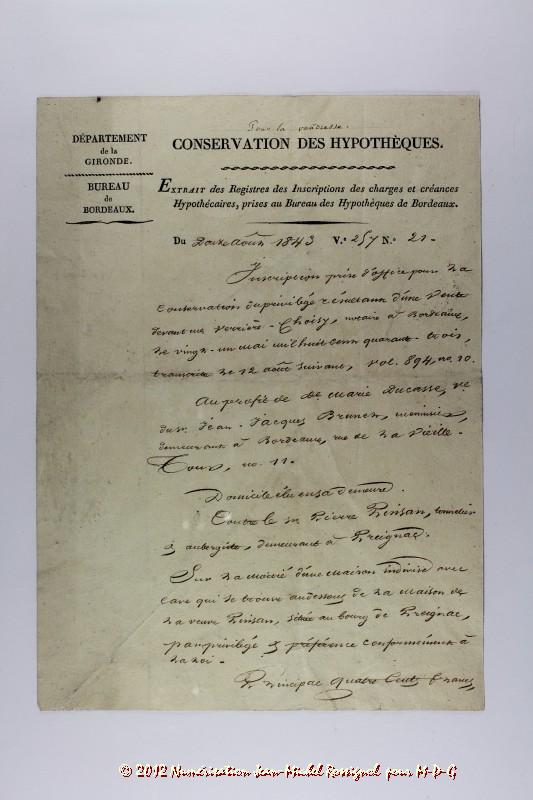 Pour la venderesse.
DÉPARTEMENT
de la
GIRONDE.
BUREAU
de
BORDEAUX.
CONSERVATION DES HYPOTHÈQUES.
EXTRAIT des Registres des Inscriptions des charges et créances
Hypothécaires, prises au Bureau des Hypothèques de Bordeaux.
Du Douze août 1843 V.e 257 N.o 21.
Inscription prise d'office pour la
Conservation du privilége résultant d'une vente
devant me Verrière-Choisy, notaire à Bordeaux,
le vingt-un mai mil huit cent quarante-trois,
transcrite le 12 août suivant, vol. 894, no. 10.
Au profit de de Marie Ducasse, ve
du sr. Jean-Jacques Brunet, menuisier,
demeurant à Bordeaux, rue de la Vieille-
Tour, no. 11.
Domicile élu en sa demeure.
Contre le sr Pierre Rinsan, tonnelier
& aubergiste, demeurant à Preignac.
Sur la moitié d'une maison indivise avec
cave qui se trouve au dessous de la maison de
la veuve Rinsan, située au bourg de Preignac,
par privilégé & préférence conformément à
la loi.
Principal quatre Cents francs,
© 2012 Numérisation Jean-Michel Rossignol pour M-D-G